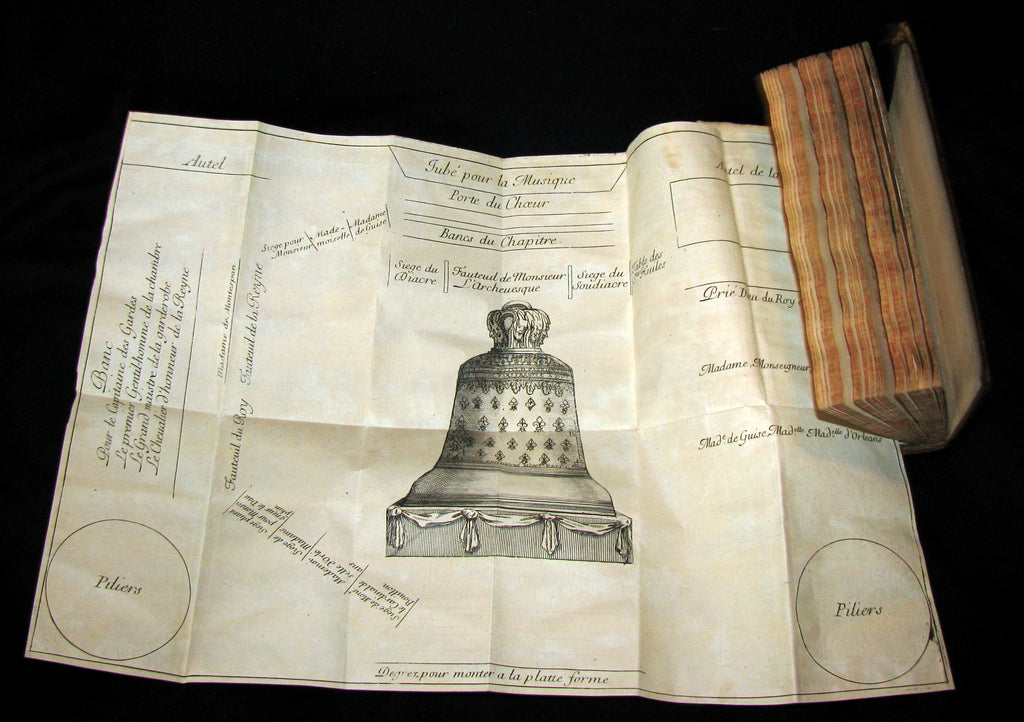 Autel
Jubé pour la Musique
Porte du Chœur
Bancs du Chapitre.
Siege du
Diacre
Fauteuil de Monsieur
L'Archeuesque
Siege du
Soudiacre
Siege pour
Monsieur
Made-
moiselle
Madame
de Guise
Banc
Pour le Capitaine des Gardes
Le premier Gentilhomme de la chambre
Le Grand maistre de la garderobe
Le Cheualier d'honneur de la Reyne
Madame de Montespan
Fauteuil du Roy Fauteuil de la Reyne
Siege pliant
pour Monsei
gneur le Dau
phin
Siege de
Madame
Mademoi-
selle d'Orle
ans
Siege de Monsr
le Cardinal de
Bouillon
Autel de la
Table des
Prié Dieu du Roy
Madame Monseigneur
Made. de Guise Madelle Madelle d'Orleans
Piliers
Piliers
Degrez pour monter a la platte forme